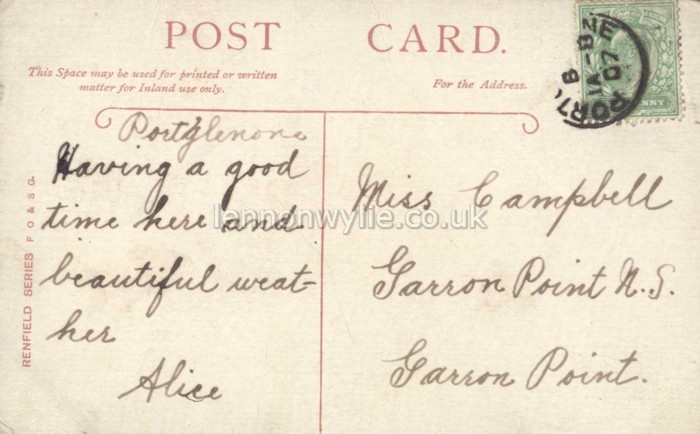 POST CARD.
This Space may be used for printed or written
matter for Inland use only.
For the Address.
Portglenone
Having a good
time here and
beautiful weat-
her
Alice
Miss Campbell
Garron Point N.S.
Garron Point.
RENFIELD SERIES F O & S G.
lennonwylie.co.uk